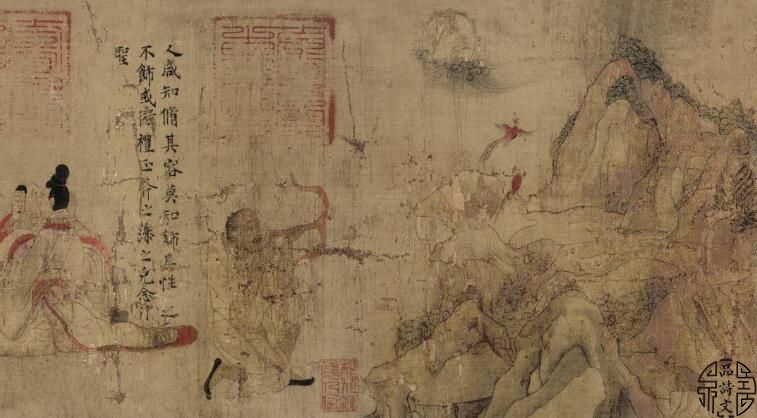 人咸知脩其容莫知飾其性之
不飾或愆禮正斧之藻之克念作
聖
品詩文